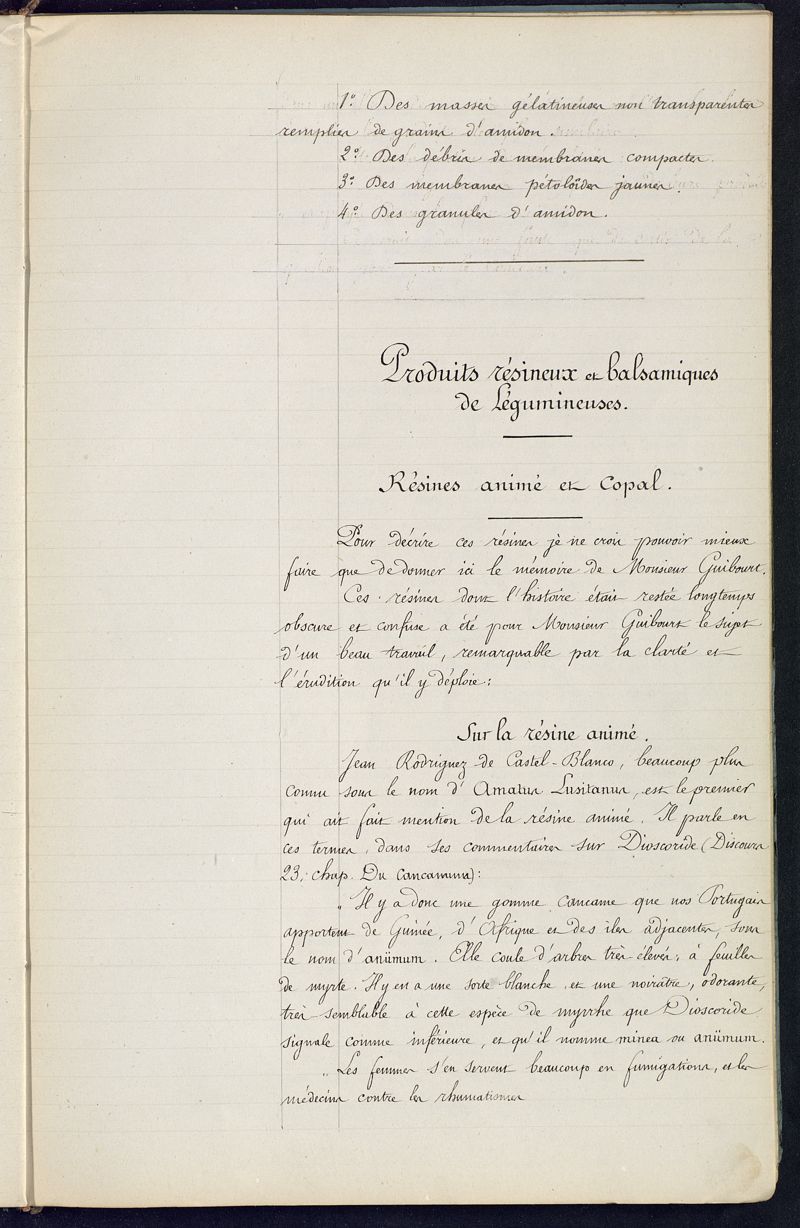 1° Des masses gélatineuses non transparentes
remplies de grains d'amidon.
2° Des débris de membranes compactes.
3° Des membranes pétoloïdes jaunes.
4° Des granules d'amidon.
Produits résineux et balsamiques
de Légumineuses.
Résines animé et Copal.
Pour décrire ces résines je ne crois pouvoir mieux
faire que de donner ici le mémoire de Monsieur Guibourt.
Ces résines dont l'histoire était restée longtemps
obscure et confuse a été pour Monsieur Guibourt le sujet
d'un beau travail, remarquable par la clarté et
l'érudition qu'il y déploie:
Sur la résine animé.
Jean Rodriguez de Castel-Blanco, beaucoup plus
connu sous le nom d'Amatus Lusitanus, est le premier
qui ait fait mention de la résine animé. Il parle en
ces termes, dans ses commentaires sur Dioscoride (Discours
23, chap. Du Cancamum):
"Il y a donc une gomme cancame que nos Portugais
apportent de Guinée, d'Afrique et des îles adjacentes, sous
le nom d'aniimum. Elle coule d'arbres très élevés, à feuilles
de myrte. Il y en a une sorte blanche et une noirâtre, odorante,
très semblable à cette espèce de myrrhe que Dioscoride
signale comme inférieure, et qu'il nomme minea ou aniimum.
"Les femmes s'en servent beaucoup en fumigations, et les
médecins contre les rhumatismes